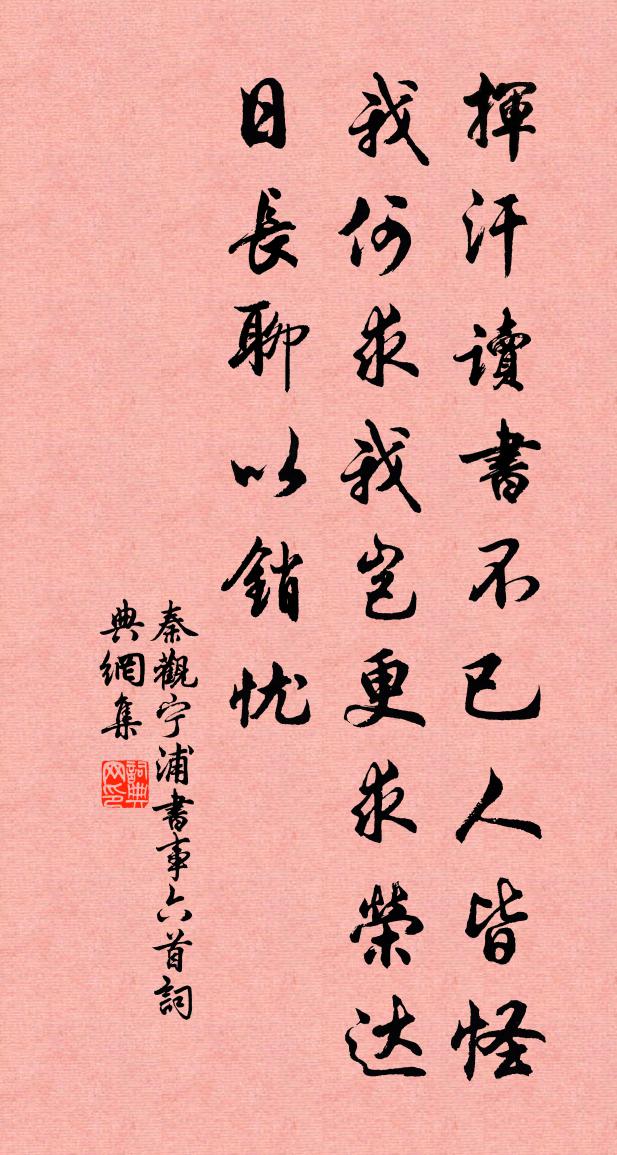 揮汗讀書不已人皆怪
我何求我岂更求榮达
日長聊以銷忧
秦觀宁浦書事六首詞
典網集
詞典网印